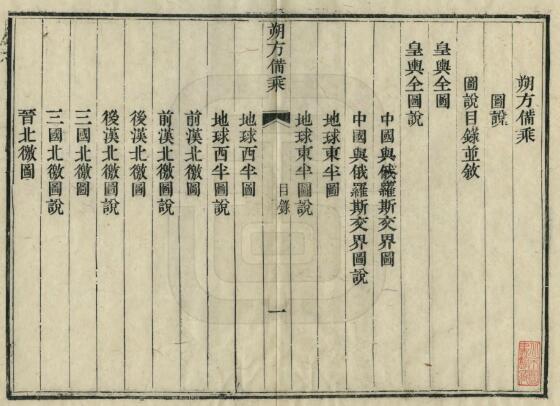 朔方備乘
圖說
圖說目錄並敘
皇輿全圖
皇輿全圖說
中國與俄羅斯交界圖
中國與俄羅斯交界圖說
地球東半圖
地球東半圖說
朔方備乘
目錄
一
地球西半圖
地球西半圖說
前漢北徼圖
前漢北徼圖說
後漢北徼圖
後漢北徼圖說
三國北徼圖
三國北徼圖說
晉北徼圖